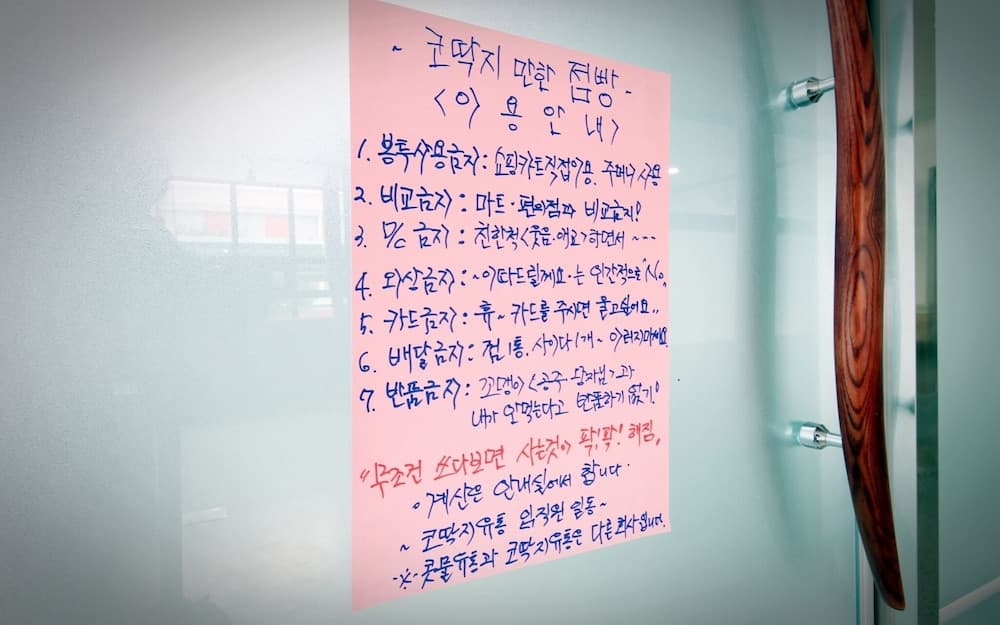 ~ 코딱지 만한 점빵 -
<이 용 안 내>
1. 봉투사용금지 : 쇼핑카트직접이용. 주머니 사용
2. 비교금지 : 마트·편의점과 비교금지!
3. D/C 금지 : 친한척<웃음·애교>하면서 ~ ---
4. 외상금지 : ~이따드릴께요·는 인간적으로 No,
5. 카드금지 : 휴~ 카드를 주시면 울고싶어요..
6. 배달금지 : 껌1통, 사이다1개~ 이러지마세요
7. 반품금지 : 꼬맹이<공주·왕자님>과
내가 안먹는다고 반품하기 없기!
"무조건 쓰다보면 사는것이 팍!팍! 해짐,
○계산은 안내실에서 합니다.
~ 코딱지유통 임직원 일동~
-※-콧물유통과 코딱지유통은 다른회사입니다.